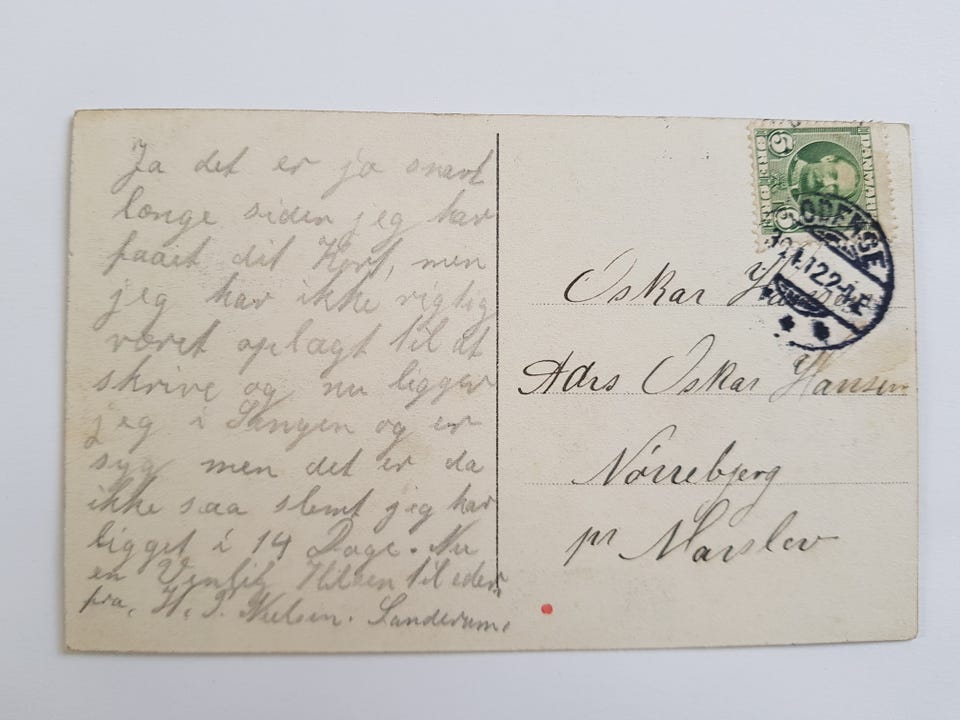 Ja det er jo snart
længe siden jeg har
faaet dit Kort, men
jeg har ikke rigtig
været oplagt til at
skrive og nu ligger
jeg i Sengen og er
syg men det er da
ikke saa slemt jeg har
ligget i 14 Dage. Nu
en Venlig Hilsen til eder
fra, H. P. Nielsen. Sanderum.
DANMARK
5
5
ODENSE
Oskar Hansen
Adrs Oskar Hansen
Nörrebjerg
pr Marslev